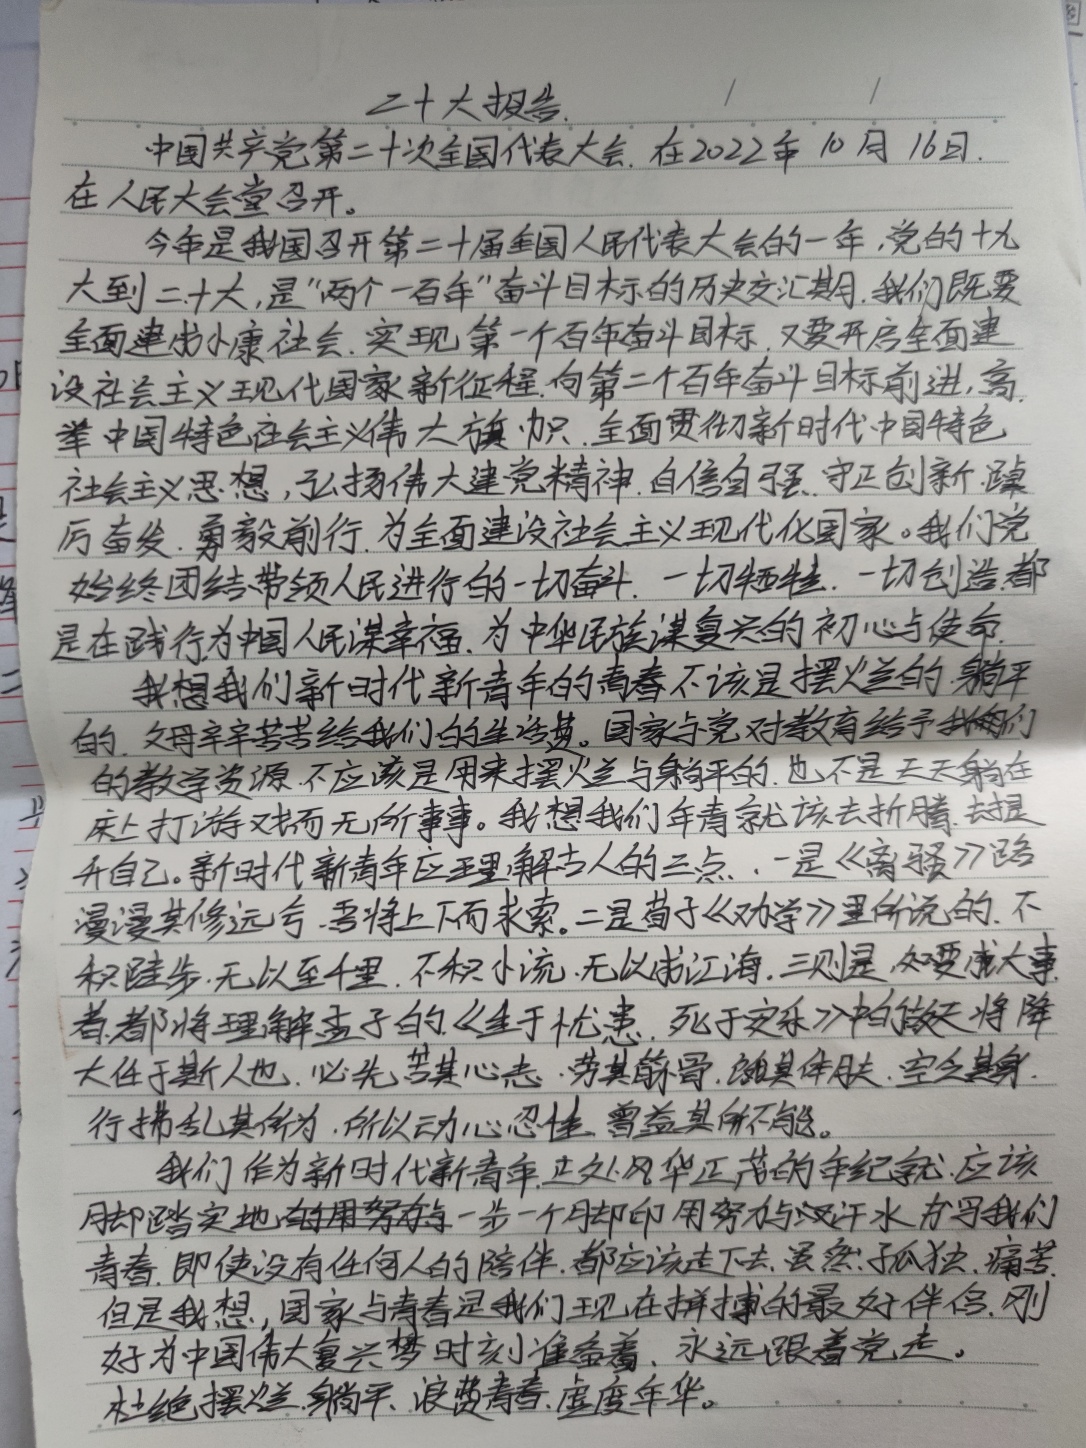 二十大报告.
中国共产党第二十次全国代表大会.在2022年10月16日.
在人民大会堂召开。
今年是我国召开第二十届全国人民代表大会的一年,党的十九
大到二十大,是"两个一百年"奋斗目标的历史交汇期.我们既要
全面建成小康社会.实现第一个百年奋斗目标.又要开启全面建
设社会主义现代国家新征程.向第二个百年奋斗目标前进,高
举中国特色社会主义伟大旗帜.全面贯彻新时代中国特色
社会主义思想,弘扬伟大建党精神.自信自强.守正创新.踔
厉奋发.勇毅前行.为全面建设社会主义现代化国家。我们党
始终团结带领人民进行的一切奋斗.一切牺牲.一切创造.都
是在践行为中国人民谋幸福.为中华民族谋复兴的初心与使命.
我想我们新时代新青年的青春不该是摆火烂的.躺平
的.父母辛辛苦苦给我们的生活费。国家与党对教育给予我们
的教学资源.不应该是用来摆火烂与躺平的.也不是天天躺在
床上打游戏而无所事事。我想我们年青就该去折腾.去提
升自己。新时代新青年应理解古人的三点.一是《离骚》路
漫漫其修远兮.吾将上下而求索。二是荀子《劝学》里所说的.不
积跬步.无以至千里.不积小流.无以成江海.三则是.如要成大事
者.都将理解孟子的《生于忧患.死于安乐》中的故天将降
大任于斯人也.必先苦其心志.劳其筋骨.饿其体肤.空乏其身.
行拂乱其所为.所以动心忍性.曾益其所不能。
我们作为新时代新青年.正处风华正茂的年纪就.应该
脚踏实地一步一个脚印用努力与汗水书写我们
青春.即使没有任何人的陪伴.都应该走下去.虽然.孤独.痛苦.
但是我想,国家与青春是我们现在拼搏的最好伴侣.刚
好为中国伟大复兴梦时刻准备着.永远跟着党走。
杜绝摆烂.躺平.浪费青春.虚度年华。